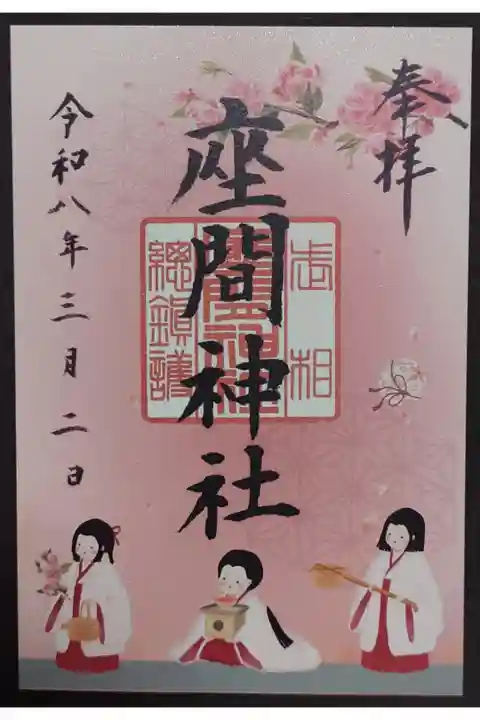 奉拝
座間神社
武相
座間神社
總鎮護
令和八年三月二日